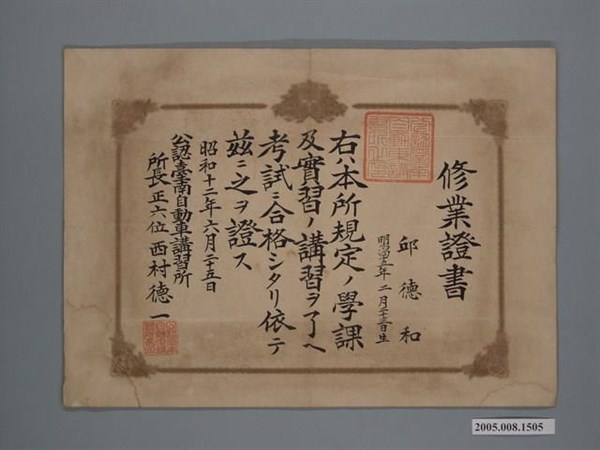 修業證書
邱德和
明治四十五年二月二十三日生
右ハ本所規定ノ學課
及實習ノ講習ヲ了ヘ
考試ニ合格シタリ依テ
茲ニ之ヲ證ス
昭和十二年六月二十五日
公認臺南自動車講習所
所長正六位西村德一
2005.008.1505